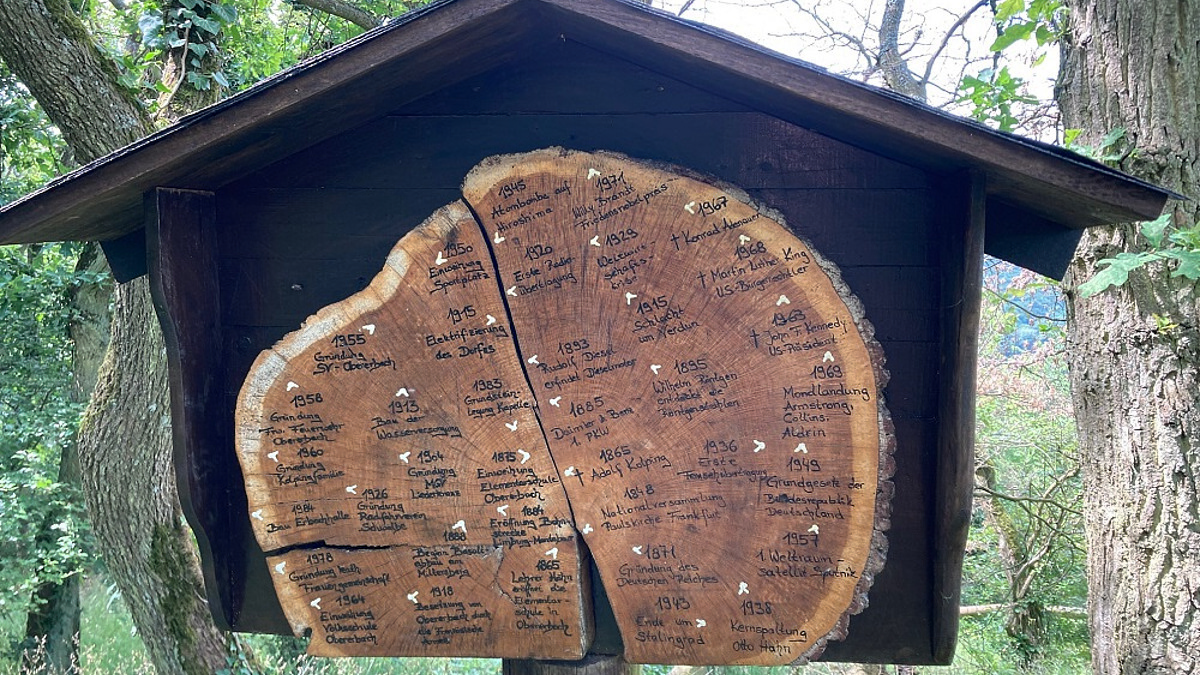 1945
Atombombe auf
Hiroshima
1971
Willy Brandt
Friedensnobelpreis
1967
† Konrad Adenauer
1950
Einweihung
Sportplatz
1920
Erste Radio-
übertragung
1929
Weltwirt-
schafts-
krise
1968
† Martin Luther King
US-Bürgerrechtler
1915
Elektrifizierung
des Dorfes
1915
Schlacht
um Verdun
1963
† John F. Kennedy
US-Präsident
1955
Gründung
SV-Obererbach
1893
Rudolf Diesel
erfindet Dieselmotor
1895
Wilhelm Röntgen
entdeckt die
Röntgenstrahlen
1969
Mondlandung
Armstrong,
Collins,
Aldrin
1958
Gründung
Frw. Feuerwehr
Obererbach
1913
Bau der
Wasserversorgung
1983
Grundstein-
legung Kapelle
1885
Daimler u. Benz
1. PKW
1960
Gründung
Kolpingfamilie
1904
Gründung
MGV
Liederkranz
1875
Einweihung
Elementarschule
Obererbach
1865
† Adolf Kolping
1936
Erste
Fernsehübertragung
1949
Grundgesetz der
Bundesrepublik
Deutschland
1984
Bau Erbachhalle
1926
Gründung
Radfahrverein
Schwalbe
1884
Eröffnung Bahn-
strecke
Limburg-Montabaur
1848
Nationalversammlung
Paulskirche Frankfurt
1978
Gründung kath.
Frauengemeinschaft
1888
Beginn Basalt-
abbau am
1865
Lehrer Hahn
eröffnet die
Elementar-
schule in
Obererbach
1871
Gründung des
Deutschen Reiches
1957
1. Weltraum-
satellit Sputnik
1964
Einweihung
Volksschule
Obererbach
1918
Besetzung von
Obererbach durch
die Französische
Armee
1943
Ende um
Stalingrad
1938
Kernspaltung
Otto Hahn